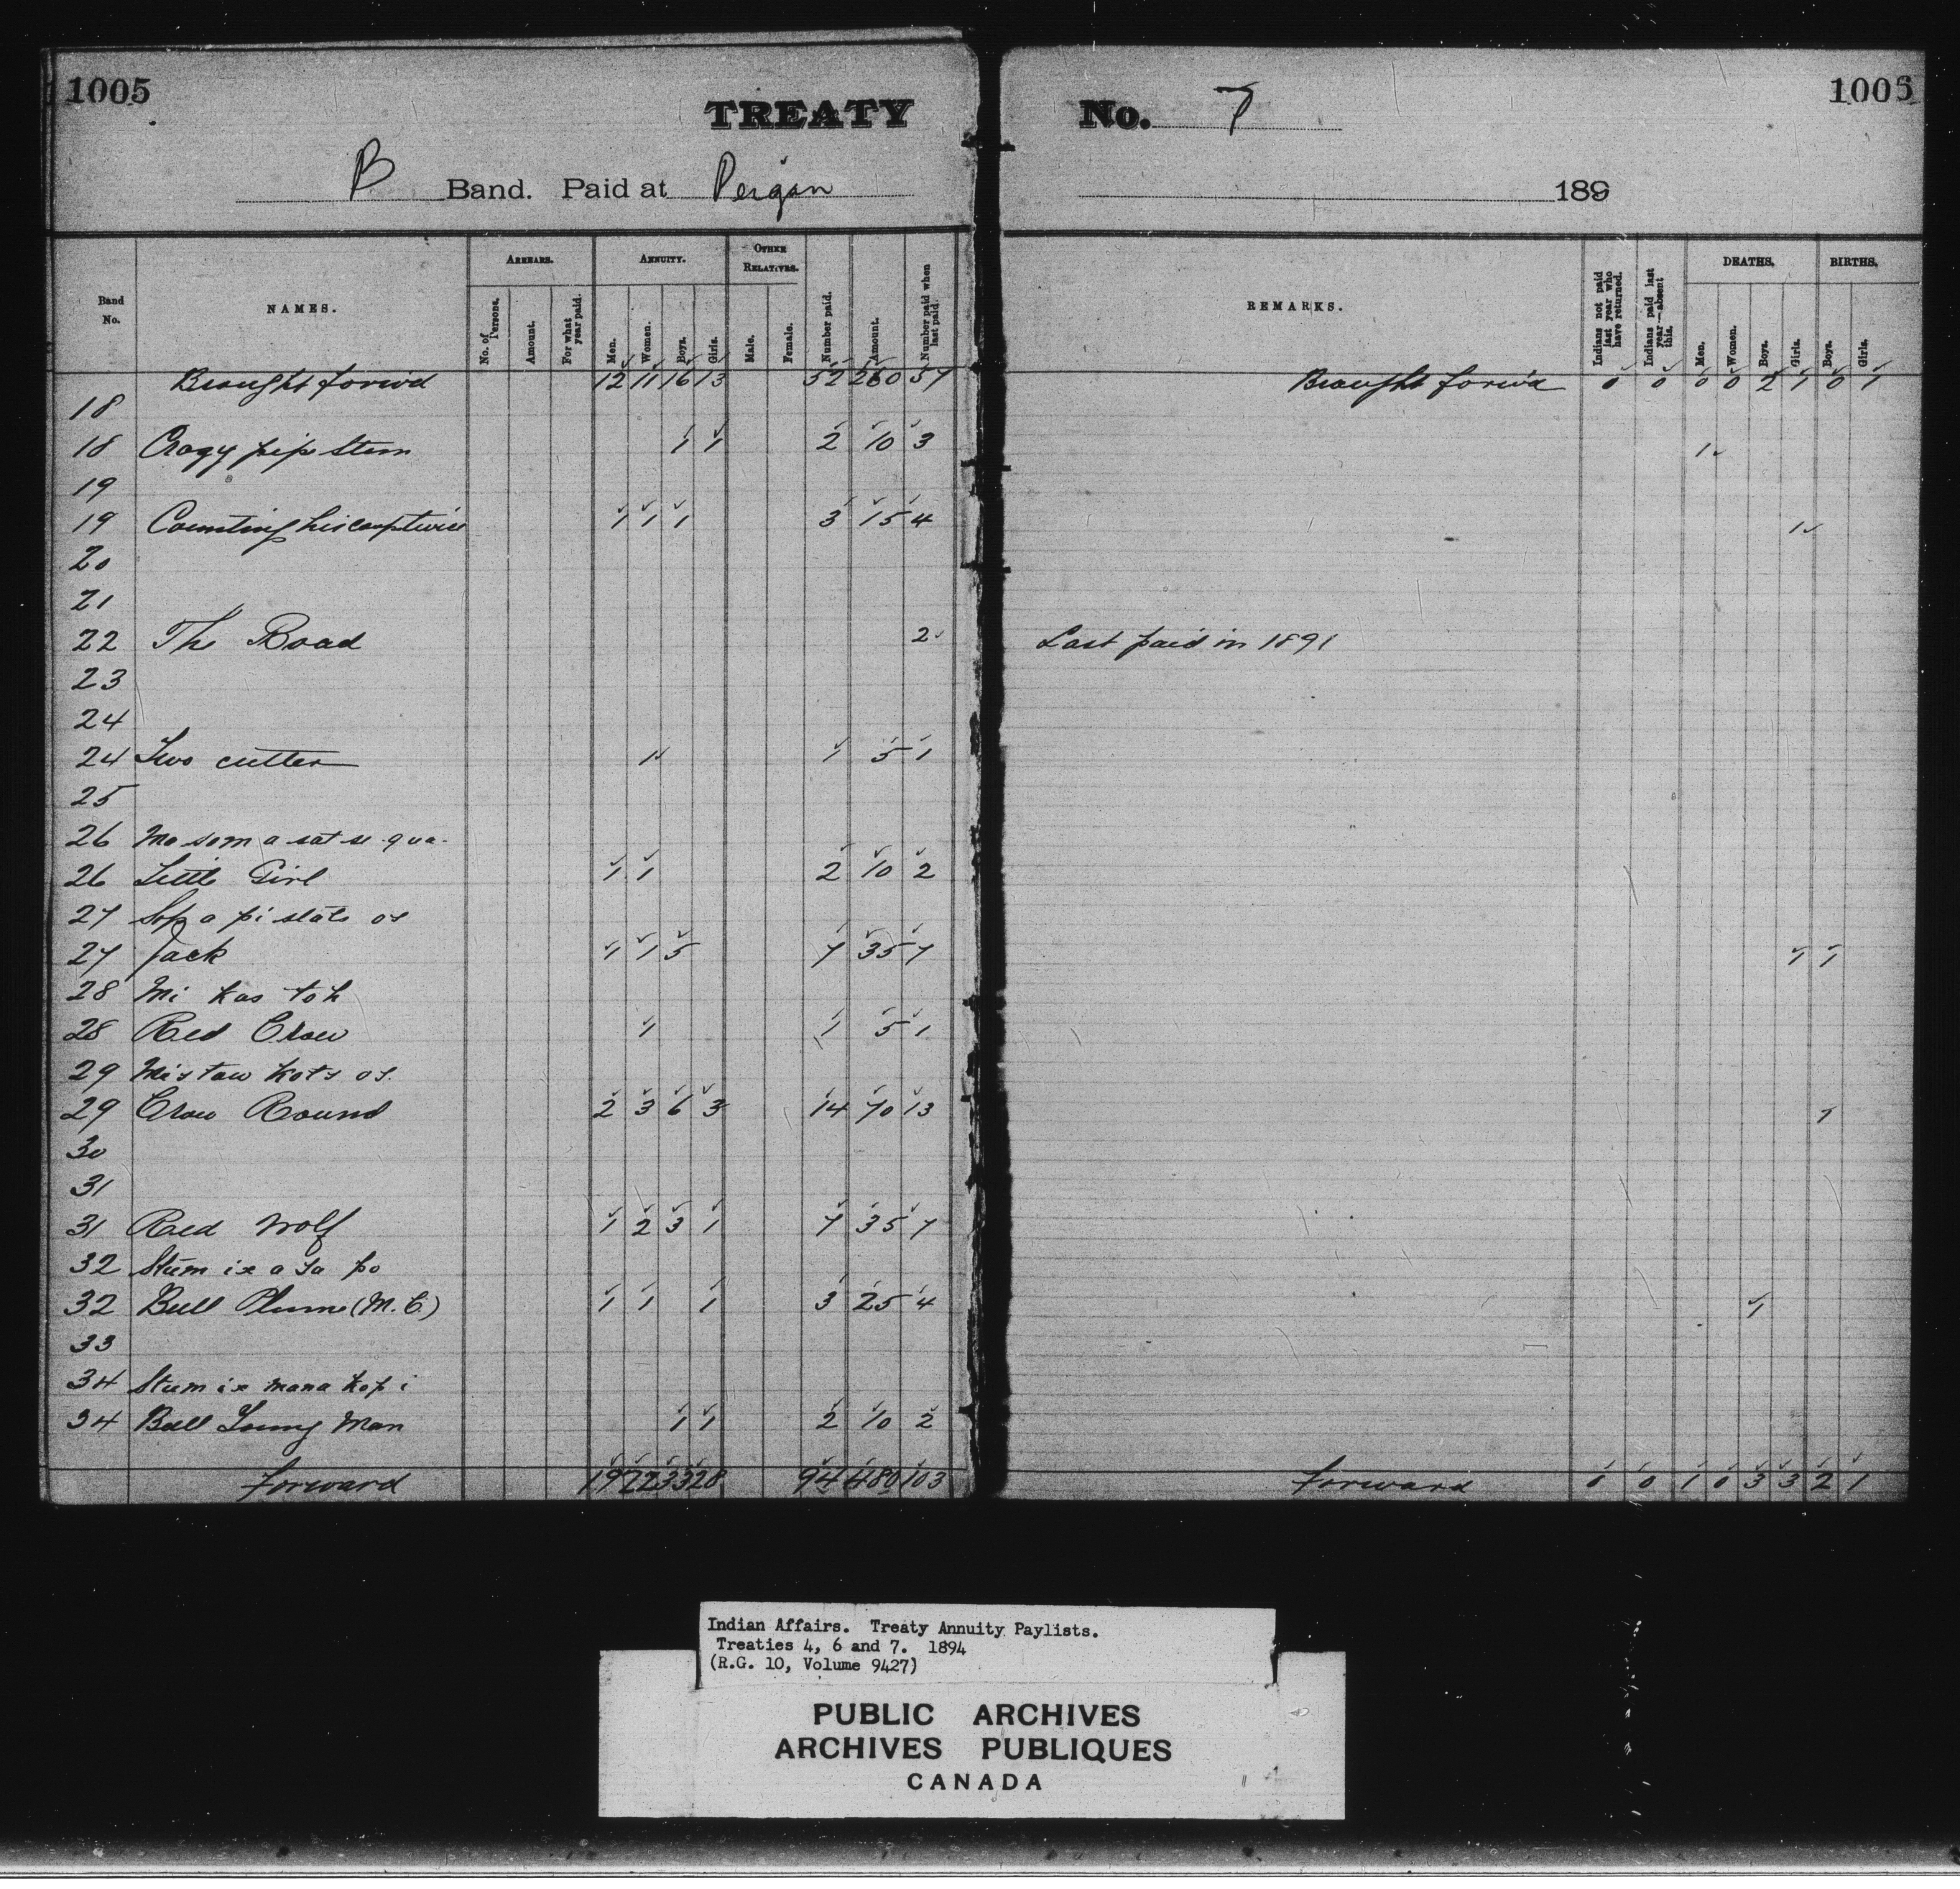 1005
TREATY No. 7
1005
B Band. Paid at Peigan 189
Band No. NAMES. ARREARS. No. of Persons. Amount. For what year paid. ANNUITY. Men. Women. Boys. Girls. OTHER RELATIVES. Male. Female. Number paid. Amount. Number paid when last paid. REMARKS. Indians not paid last year who have returned. Indians paid last year—absent this. DEATHS. Men. Women. Boys. Girls. BIRTHS. Boys. Girls.
Brought forw'd 12 11 16 13 52 260 57 Brought forw'd 0 0 0 0 2 1 0 1
18
18 Cragy pipe Stem 1 1 2 10 3 1
19
19 Counting his coup twice 1 1 1 3 15 4 1
20
21
22 The Road 2 Last paid in 1891
23
24
24 Two cutter 1 1 5 1
25
26 Mo som a sat se qua.
26 Little Girl 1 1 2 10 2
27 Sop a pi stats os
27 Jack 1 1 5 7 35 7 1 1
28 Mi kas toh
28 Red Crow 1 1 5 1
29 Mis taw kots os.
29 Crow Round 2 3 6 3 14 70 13 1
30
31
31 Red Wolf 1 2 3 1 7 35 7
32 Stum ix a ta po
32 Bull Plume (M. C.) 1 1 1 3 25 4 1
33
34 Stum ix mana kop i
34 Bull Young Man 1 1 2 10 2
forward 19 22 33 20 94 480 103 forward 0 0 1 0 3 3 2 1
Indian Affairs. Treaty Annuity Paylists.
Treaties 4, 6 and 7. 1894
(R.G. 10, Volume 9427)
PUBLIC ARCHIVES
ARCHIVES PUBLIQUES
CANADA